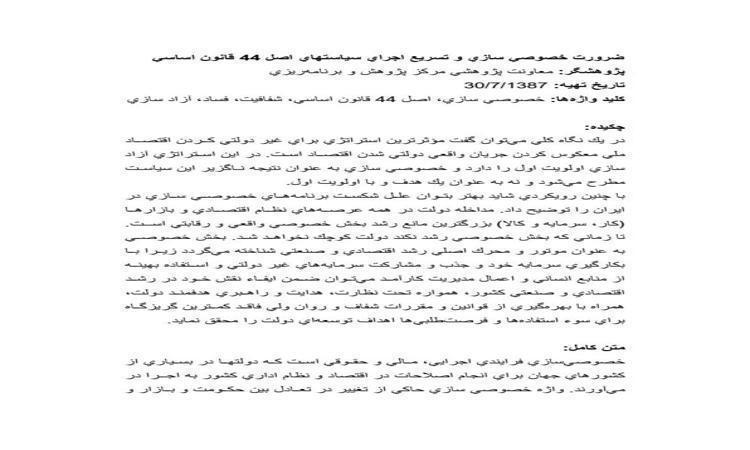 ضرورت خصوصي سازي و تسريع اجراي سياستهاي اصل 44 قانون اساسي
پژوهشگر: معاونت پژوهشي مركز پژوهش و برنامه‌ريزي
تاريخ تهيه: 30/7/1387
كليد واژه‌ها: خصوصي سازي، اصل 44 قانون اساسي، شفافيت، فساد، آزاد سازي
چكيده:
در يك نگاه كلي مي‌توان گفت مؤثرترين استراتژي براي غير دولتي كردن اقتصاد
ملي معكوس كردن جريان واقعي دولتي شدن اقتصاد است. در اين استراتژي آزاد
سازي اولويت اول را دارد و خصوصي سازي به عنوان نتيجه ناگزير اين سياست
مطرح مي‌شود و نه به عنوان يك هدف و با اولويت اول.
با چنين رويكردي شايد بهتر بتوان علل شكست برنامه‌هاي خصوصي سازي در
ايران را توضيح داد. مداخله دولت در همه عرصه‌هاي نظام اقتصادي و بازارها
(كار، سرمايه و كالا) بزرگترين مانع رشد بخش خصوصي واقعي و رقابتي است.
تا زماني كه بخش خصوصي رشد نكند دولت كوچك نخواهد شد. بخش خصوصي
به عنوان موتور و محرك اصلي رشد اقتصادي و صنعتي شناخته مي‌گردد زيرا با
بكارگيري سرمايه خود و جذب و مشاركت سرمايه‌هاي غير دولتي و استفاده بهينه
از منابع انساني و اعمال مديريت كارآمد مي‌توان ضمن ايفاء نقش خود در رشد
اقتصادي و صنعتي كشور، همواره تحت نظارت، هدايت و راهبري هدفمند دولت،
همراه با بهره‌گيري از قوانين و مقررات شفاف و روان ولي فاقد كمترين گريزگاه
براي سوء استفاده‌ها و فرصت‌طلبي‌ها اهداف توسعه‌اي دولت را محقق نمايد.
متن كامل:
خصوصي‌سازي فرايندي اجرايي، مالي و حقوقي است كه دولتها در بسياري از
كشورهاي جهان براي انجام اصلاحات در اقتصاد و نظام اداري كشور به اجرا در
مي‌آورند. واژه خصوصي سازي حاكي از تغيير در تعادل بين حكومت و بازار و